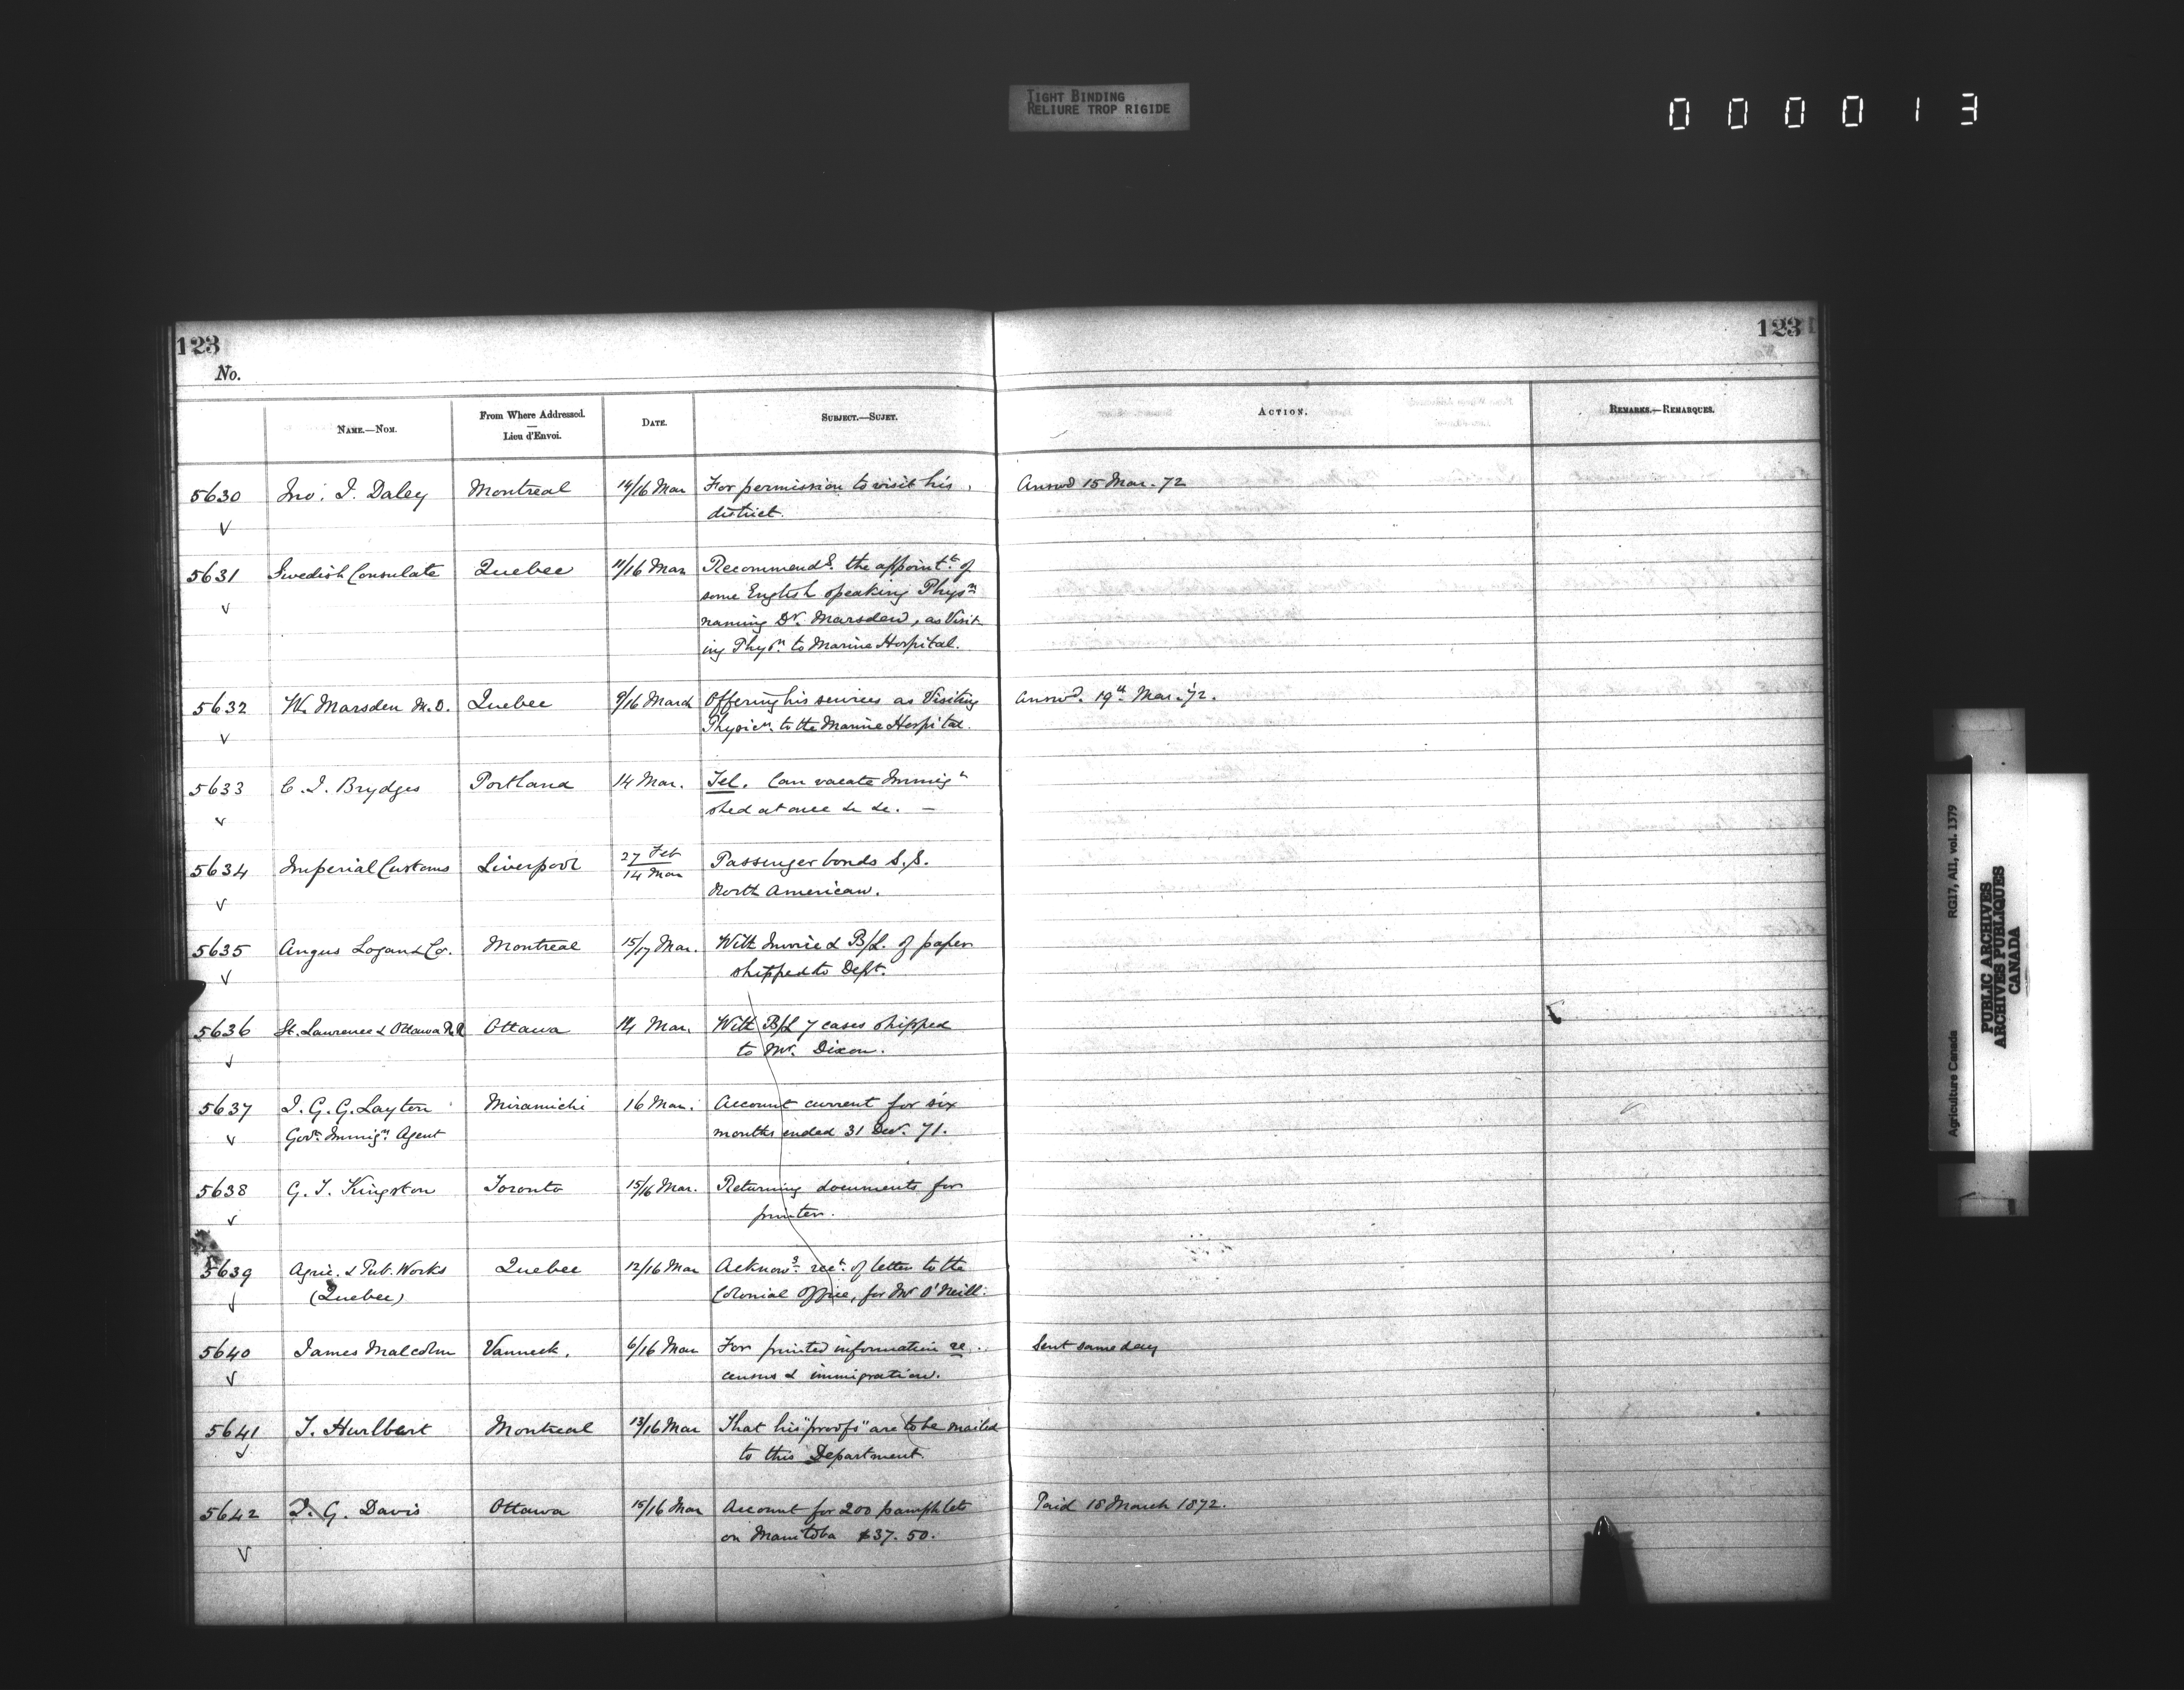 TIGHT BINDING
RELIURE TROP RIGIDE
0 0 0 0 1 3
123
123
No.
NAME.—NOM.
From Where Addressed.
—
Lieu d'Envoi.
DATE.
SUBJECT.—SUJET.
ACTION.
REMARKS.—REMARQUES.
5630 Jno. J. Daley Montreal 14/16 Mar For permission to visit his Answd 15 Mar. 72
district.
5631 Swedish Consulate Quebec 11/16 Mar Recommendg. the appointt. of
some English speaking Physn
naming Dr. Marsden, as Visit
ing Physn. to Marine Hospital.
5632 W. Marsden M.D. Quebec 9/16 March Offering his services as Visiting Answd. 19th Mar. 72.
Physicn. to the Marine Hospital.
5633 C. J. Brydges Portland 14 Mar. Tel. Can vacate Immign
shed at once &c &c. —
5634 Imperial Customs Liverpool 27 Feb Passenger bonds S.S.
14 Mar North American.
5635 Angus Logan & Co. Montreal 15/17 Mar. With Invoice & B/L. of paper
shipped to Dept.
5636 St. Lawrence & Ottawa R.R Ottawa 14 Mar. With B/L 7 cases shipped
to Mr. Dixon.
5637 J. G. G. Layton Miramichi 16 Mar. Account current for six
Govt. Immign. Agent months ended 31 Dec. 71.
5638 G. T. Kingston Toronto 15/16 Mar. Returning documents for
printer.
5639 Agric. & Pub. Works Quebec 12/16 Mar Acknowg. rect. of letter to the
(Quebec) Colonial Office, for Mr O'Neill.
5640 James Malcolm Vanneck. 6/16 Mar For printed information re Sent same day
census & immigration.
5641 J. Hurlbert Montreal 13/16 Mar That his "proofs" are to be mailed
to this Department.
5642 J. G. Davis Ottawa 15/16 Mar Account for 200 pamphlets Paid 18 March 1872.
on Manitoba $37.50.
Agriculture Canada RG17, AII, vol. 1379
PUBLIC ARCHIVES
ARCHIVES PUBLIQUES
CANADA